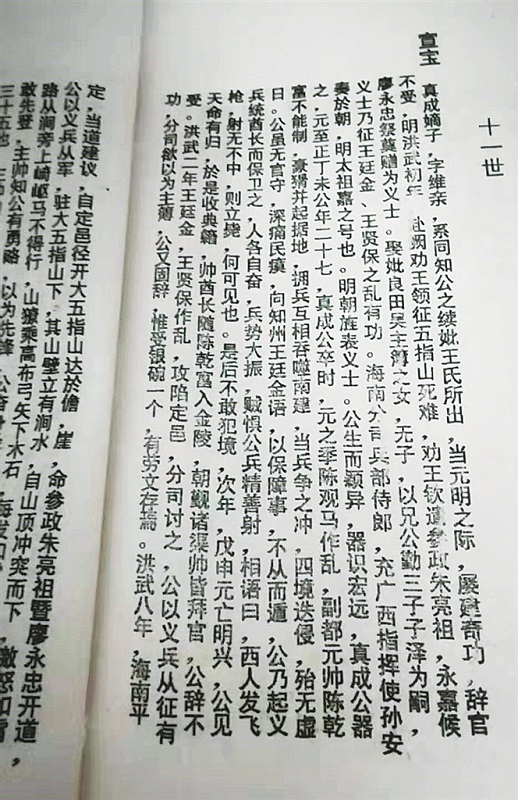 十一世
宣宝
真成嫡子，字维亲，系同知公之续妣王氏所出，当元明之际，屡建奇功，辞官
不受，明洪武初年，赴阙劝王领征五指山死难，劝王钦遣参政朱亮祖，永嘉候
廖永忠祭奠赠为义士。娶妣良田吴主簿之女，无子，以兄公勤三子子泽为嗣，
义士乃征王廷金、王贤保之乱有功。海南分司兵部侍郎，充广西指挥使孙安
奏於朝，明太祖嘉之号也。明朝旌表义士。公生而颖异，器识宏远，真成公器
之，元至正丁未公年二十七，真成公卒时，元之季陈观马作乱，副都元帅陈乾
富不能制，豪猾并起据地，拥兵互相吞噬南建，当兵争之冲，四境迭侵，殆无虚
日。公虽无官守，深痛民瘼，向知州王廷金语，以保障事，不从而遁，公乃起义
兵统酋长而保卫之，人各自奋，兵势大振，贼惧公兵精善射，相语曰，西人发飞
枪，射无不中，则立毙，何可见也。是后不敢犯境，次年，戊申元亡明兴，公见
天命有归，於是收典籍，帅酋长随陈乾富入金陵，朝觐诸渠帅皆拜官，公辞不
受。洪武二年王廷金，王贤保作乱，攻陷定邑，分司讨之，公以义兵从征有
功，分司欲以为主簿，公又固辞，惟受银碗一个，有劳文存焉。洪武八年，海南平
定，当道建议，自定邑径开大五指山达於儋，崖，命参政朱亮祖暨廖永忠开道
公以义兵从军，驻大五指山下，其山壁立有涧水，自山顶冲突而下，激怒如雷，
路从涧旁上崎岖马不得行，山獠乘高布弓矢下木石，
敢先登，主帅知公有勇略，以为先锋，公奋
三十五也